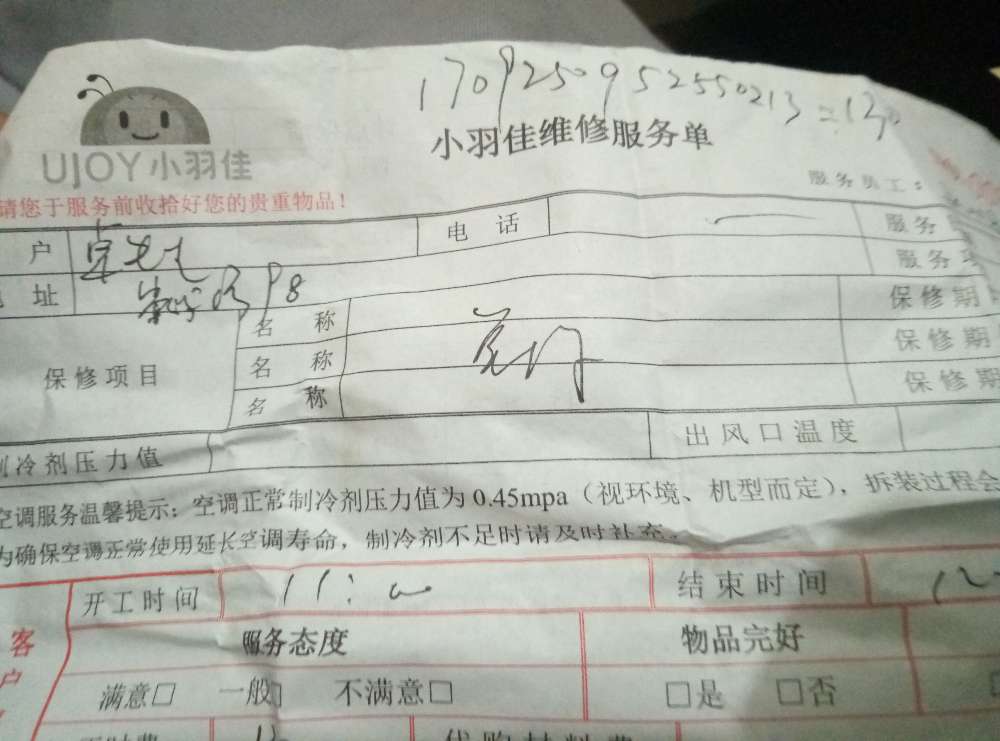 1709250952550213=130
UJOY小羽佳
小羽佳维修服务单
服务员工：
请您于服务前收拾好您的贵重物品！
户 电 话 服务
址 98 服务
保修项目 名 称 保修期
名 称 保修期
名 称 保修期
制冷剂压力值 出风口温度
空调服务温馨提示：空调正常制冷剂压力值为 0.45mpa（视环境、机型而定），拆装过程会
为确保空调正常使用延长空调寿命，制冷剂不足时请及时补充。
开工时间 11:00 结束时间 12
客户 服务态度 物品完好
满意□ 一般□ 不满意□ □是 □否
代购材料费